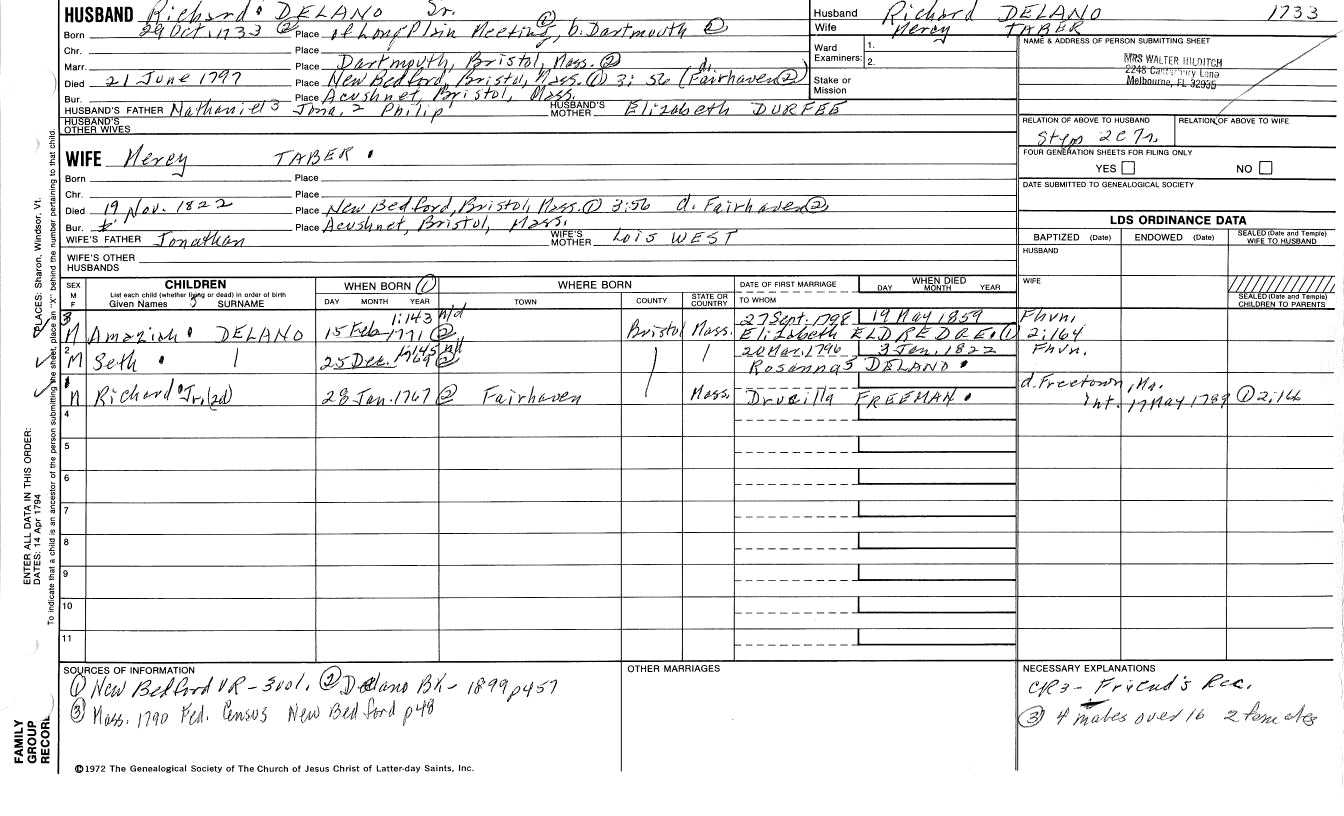 HUSBAND Richard DELANO Sr.
Born 29 Oct. 1733 ② Place of Long Plain Meeting, ① b. Dartmouth ②
Chr. Place
Marr. Place Dartmouth, Bristol, Mass. ②
Died 21 June 1797 Place New Bedford, Bristol, Mass. ① 3:56 (d. Fairhaven ②)
Bur. Place Acushnet, Bristol, Mass.
HUSBAND'S FATHER Nathaniel 3 Jona. 2 Philip HUSBAND'S MOTHER Elizabeth DURFEE
HUSBAND'S OTHER WIVES
WIFE Mercy TABER
Born Place
Chr. Place
Died 19 Nov. 1822 Place New Bedford, Bristol, Mass. ① 3:56 d. Fairhaven ②
Bur. Place Acushnet, Bristol, Mass.
WIFE'S FATHER Jonathan WIFE'S MOTHER Lois WEST
WIFE'S OTHER HUSBANDS
Husband Richard DELANO 1733
Wife Mercy TABER
Ward Examiners: 1. 2.
Stake or Mission
NAME & ADDRESS OF PERSON SUBMITTING SHEET
MRS WALTER HILDITCH
2248 Canterbury Lane
Melbourne, FL 32935
RELATION OF ABOVE TO HUSBAND RELATION OF ABOVE TO WIFE
FOUR GENERATION SHEETS FOR FILING ONLY
YES NO
DATE SUBMITTED TO GENEALOGICAL SOCIETY
LDS ORDINANCE DATA
BAPTIZED (Date) ENDOWED (Date) SEALED (Date and Temple) WIFE TO HUSBAND
HUSBAND
WIFE
SEALED (Date and Temple) CHILDREN TO PARENTS
SEX M F
CHILDREN
List each child (whether living or dead) in order of birth
Given Names SURNAME
WHEN BORN ①
DAY MONTH YEAR
WHERE BORN
TOWN COUNTY STATE OR COUNTRY
DATE OF FIRST MARRIAGE
TO WHOM
WHEN DIED
DAY MONTH YEAR
3 M Amaziah DELANO 15 Feb 1771 ② 1:143 Bristol Mass. 27 Sept. 1798 19 May 1859 Fhvn.
Elizabeth ELDREDGE ① 2:164
2 M Seth 25 Dec. 1769 ② 1:145 20 Mar. 1796 3 Jan. 1822 Fhvn.
Rosanna 5 DELANO
1 M Richard Jr. (2d) 28 Jan. 1767 ② Fairhaven Mass. Drucilla FREEMAN d. Freetown, Ma.
Int. 17 May 1789 ① 2:166
4
5
6
7
8
9
10
11
SOURCES OF INFORMATION
① New Bedford VR - 3 vol. ② Delano Bk - 1899 p457
③ Mass. 1790 Fed. Census New Bedford p48
OTHER MARRIAGES
NECESSARY EXPLANATIONS
CR3 - Friend's Rec.
③ 4 males over 16 2 females
©1972 The Genealogical Society of The Church of Jesus Christ of Latter-day Saints, Inc.
FAMILY GROUP RECORD
ENTER ALL DATA IN THIS ORDER:
DATES: 14 Apr 1794
PLACES: Sharon, Windsor, Vt.
To indicate that a child is an ancestor of the person submitting the sheet, place an "X" behind the number pertaining to that child.